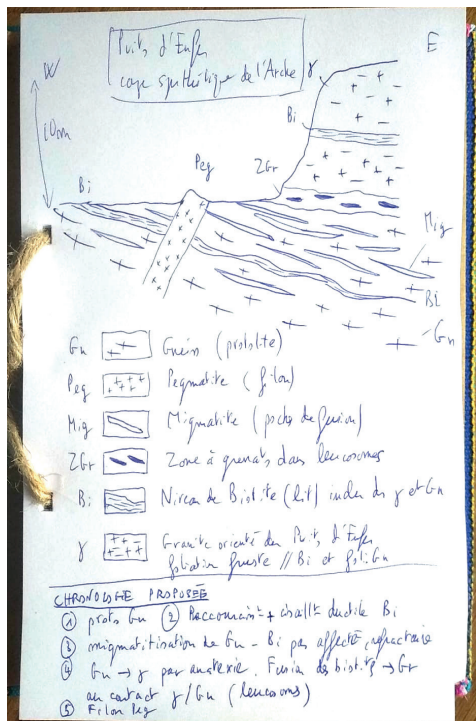 W
Puits d'Enfer
coupe synthétique de l'Arche
γ
E
10m
Bi
Bi
Peg
ZGr
Mig
Bi
Gn
Gn Gneiss (protolite)
Peg Pegmatite (filon)
Mig Migmatite (poche de fusion)
ZGr Zone à grenats dans leucosomes
Bi Niveau de Biotite (lit) indus ds γ et Gn
γ Granite orienté du Puits d'Enfer
foliation fruste // Bi et foli Gn
CHRONOLOGIE PROPOSÉE
① proto Gn ② Raccourcist + cisaillt ductile Bi
③ migmatitisation de Gn - Bi pas affecté, refractaire
④ Gn → γ par anatexie. Fusion des biotites → Gr
au contact γ/Gn (leucosome)
⑤ Filon Peg